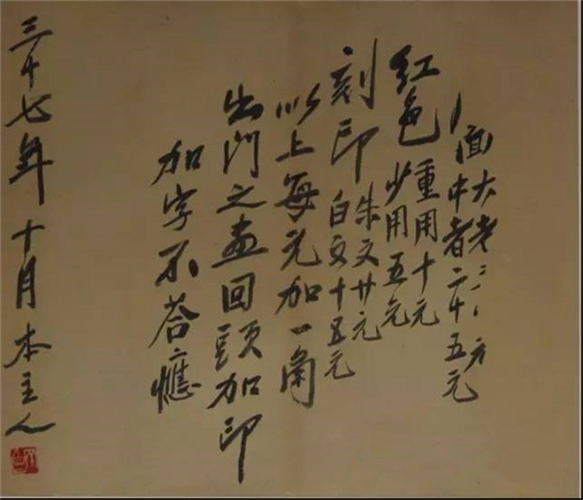 面大者三〇元
中者二十五元
紅色重用十元
少用五元
刻印朱文廿元
白文十五元
以上每元加一角
出門之畫回頭加印
加字不荅應
三十七年十月本主人